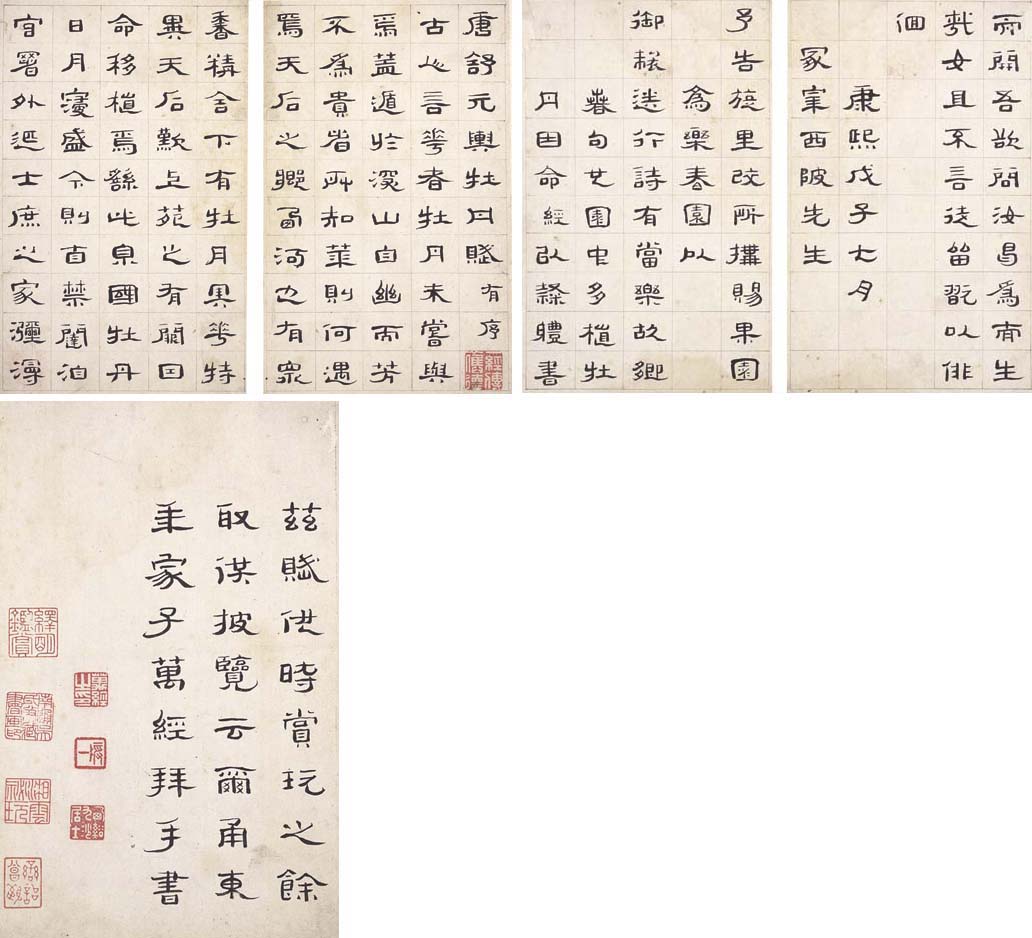 唐舒元輿牡丹賦有序
古之言花者牡丹未嘗與
焉蓋遁於深山自幽而芳
不為貴者所知華則何遇
焉天后之鄉西河也有眾
香精舍下有牡丹其花特
異天后歎上苑之有闕因
命移植焉繇此京國牡丹
日月寖盛今則自禁闥洎
官署外延士庶之家瀰漫
而開吾欲問汝曷為而生
哉汝且不言徒留翫以俳
佪
康熙戊子七月
冢宰西陂先生
予告旋里改所構賜果園
為樂春園以
御製述行詩有當樂故鄉
春句也園中多植牡
丹因命經以隸體書
茲賦供時賞玩之餘
取供披覽云爾甬東
年家子萬經拜手書